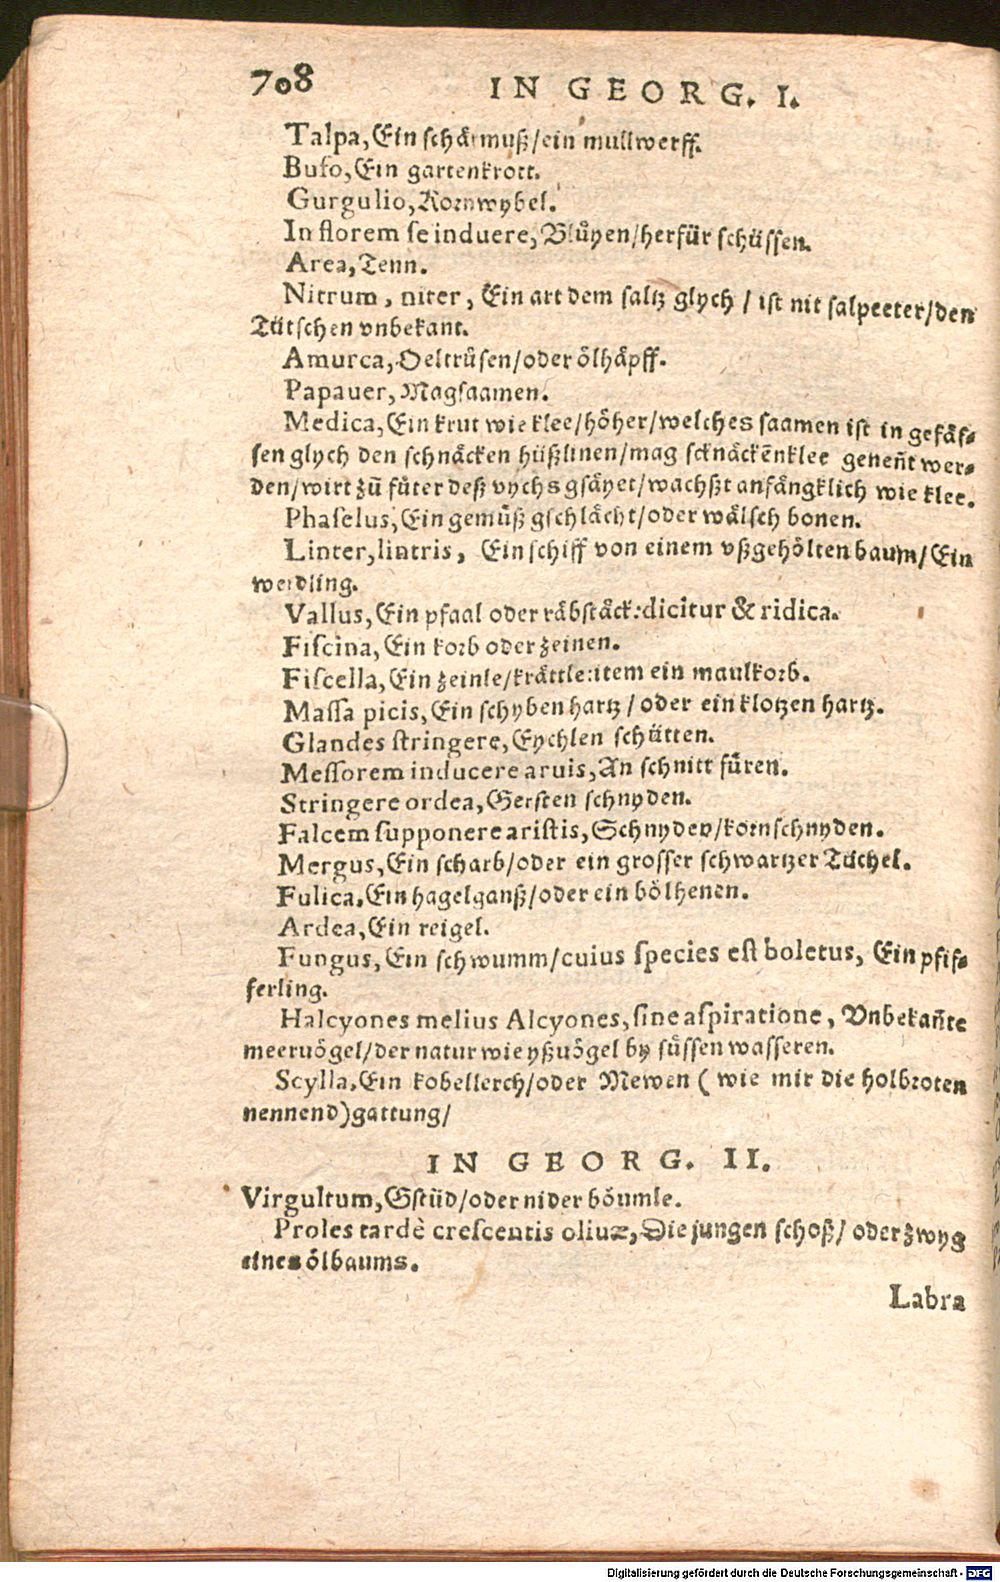 708 IN GEORG. I.
Talpa, Ein schärmuß/ein mullwerff.
Bufo, Ein gartenkrott.
Gurgulio, Kornwybel.
In florem se induere, Blůyen/herfür schüssen.
Area, Tenn.
Nitrum, niter, Ein art dem saltz glych / ist nit salpeeter/den
Tütschen vnbekant.
Amurca, Oeltrůsen/oder ölhäpff.
Papauer, Magsaamen.
Medica, Ein krut wie klee/höher/welches saamen ist in gefäs-
sen glych den schnäcken hüßlinen/mag scknäckēnklee geneñt wer-
den/wirt zů fůter deß vychs gsäyet/wachßt anfängklich wie klee.
Phaselus, Ein gemůß gschlächt/oder wälsch bonen.
Linter, lintris, Ein schiff von einem vßgehölten baum/Ein
weidling.
Vallus, Ein pfaal oder räbstäck: dicitur & ridica.
Fiscina, Ein korb oder zeinen.
Fiscella, Ein zeinle/krättle: item ein maulkorb.
Massa picis, Ein schyben hartz / oder ein klotzen hartz.
Glandes stringere, Eychlen schütten.
Messorem inducere aruis, An schnitt fůren.
Stringere ordea, Gersten schnyden.
Falcem supponere aristis, Schnyden/korn schnyden.
Mergus, Ein scharb/oder ein grosser schwartzer Tüchel.
Fulica, Ein hagelganß/oder ein bölhenen.
Ardea, Ein reigel.
Fungus, Ein schwumm/cuius species est boletus, Ein pfif-
ferling.
Halcyones melius Alcyones, sine aspiratione, Vnbekañte
meeruögel/der natur wie yßuögel by sůssen wasseren.
Scylla, Ein kobellerch/oder Mewen ( wie mir die holbroten
nennend)gattung/
IN GEORG. II.
Virgultum, Gstüd/oder nider böumle.
Proles tardè crescentis oliuæ, Die jungen schoß/ oder zwyg
eines ölbaums.
Labra
Digitalisierung gefördert durch die Deutsche Forschungsgemeinschaft - DFG